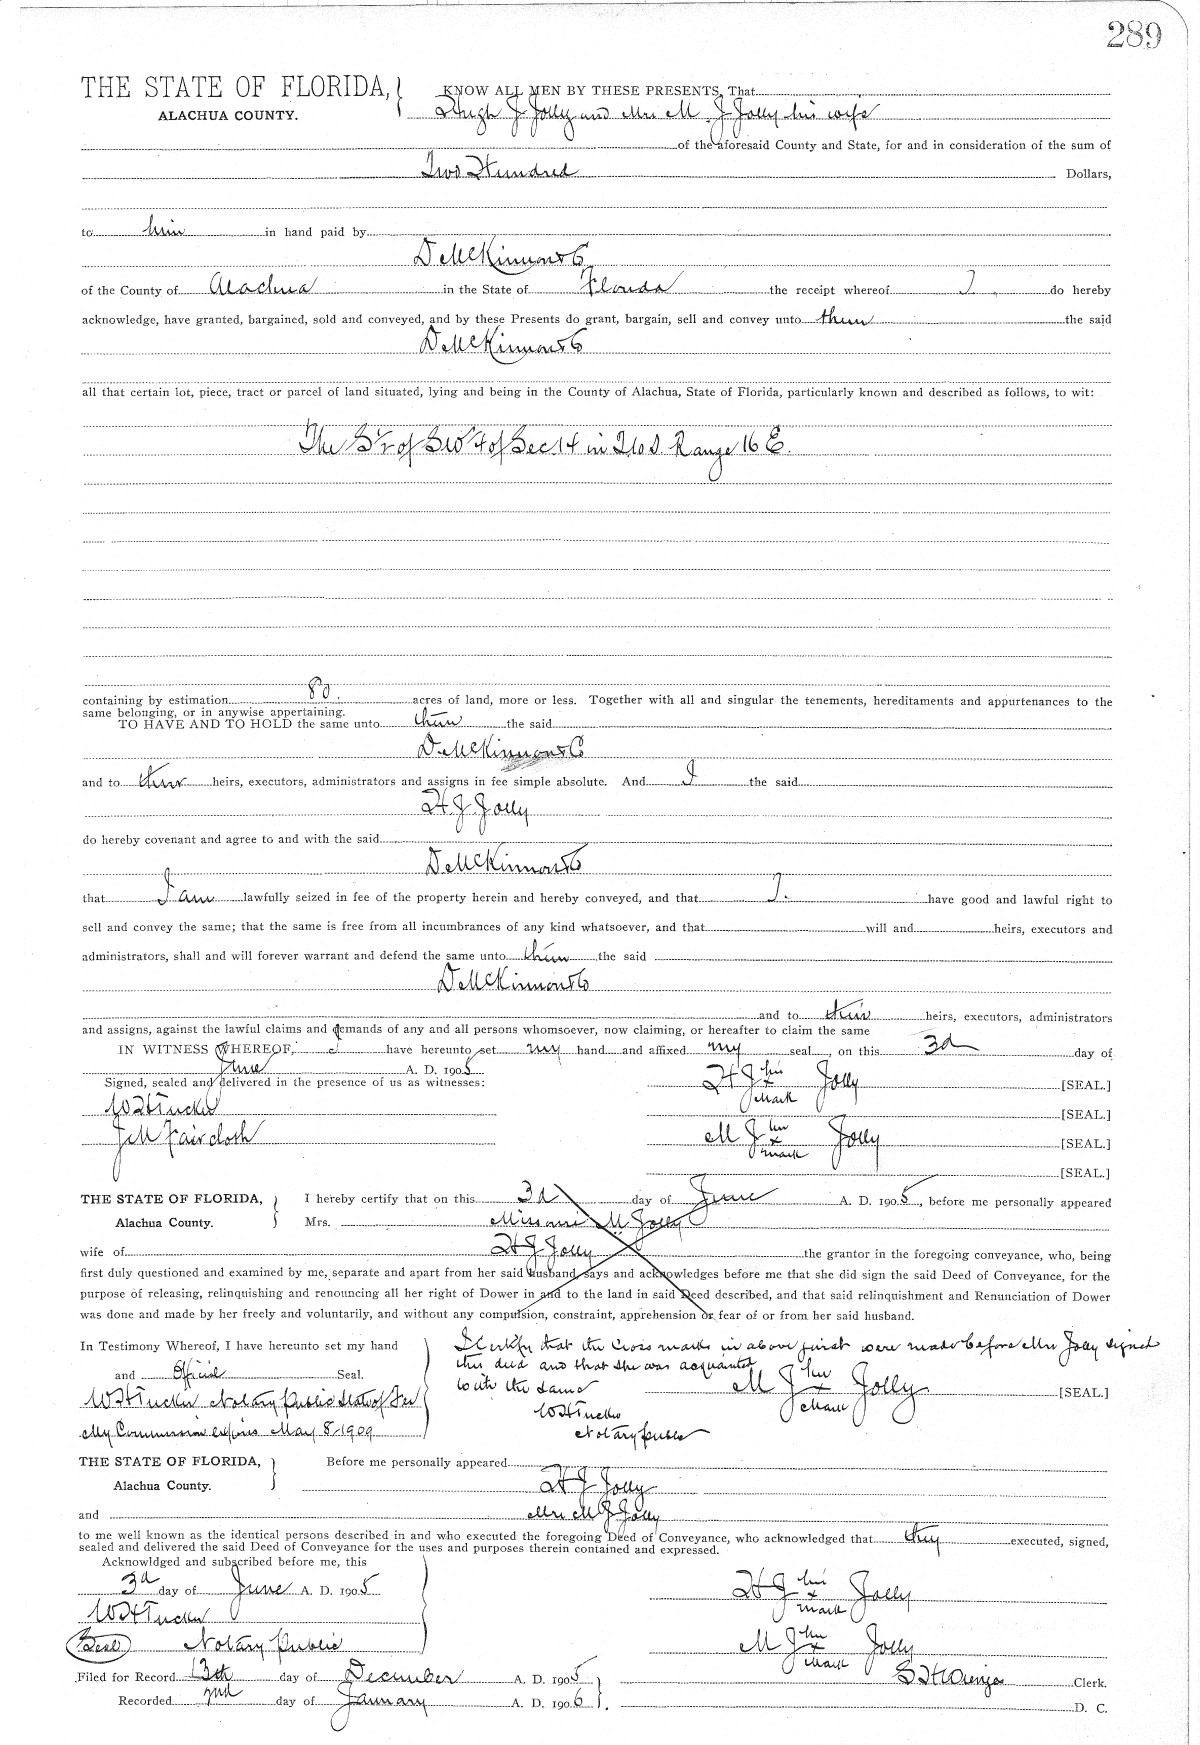 289
THE STATE OF FLORIDA, KNOW ALL MEN BY THESE PRESENTS, That
ALACHUA COUNTY. Hugh J Jolly and Mrs M. J Jolly his wife
of the aforesaid County and State, for and in consideration of the sum of
Two Hundred Dollars,
to him in hand paid by
D McKinnon & Co
of the County of Alachua in the State of Florida the receipt whereof I do hereby
acknowledge, have granted, bargained, sold and conveyed, and by these Presents do grant, bargain, sell and convey unto them the said
D McKinnon & Co
all that certain lot, piece, tract or parcel of land situated, lying and being in the County of Alachua, State of Florida, particularly known and described as follows, to wit:
The S½ of SW¼ of Sec. 14 in S. Range 16 E.
containing by estimation 80. acres of land, more or less. Together with all and singular the tenements, hereditaments and appurtenances to the
same belonging, or in anywise appertaining.
TO HAVE AND TO HOLD the same unto them the said
D. McKinnon & Co
and to their heirs, executors, administrators and assigns in fee simple absolute. And I the said
H. J. Jolly
do hereby covenant and agree to and with the said
D McKinnon & Co
that I am lawfully seized in fee of the property herein and hereby conveyed, and that I. have good and lawful right to
sell and convey the same; that the same is free from all incumbrances of any kind whatsoever, and that will and heirs, executors and
administrators, shall and will forever warrant and defend the same unto them the said
D McKinnon & Co
and to their heirs, executors, administrators
and assigns, against the lawful claims and demands of any and all persons whomsoever, now claiming, or hereafter to claim the same
IN WITNESS WHEREOF, I have hereunto set my hand and affixed my seal, on this 3d day of
June A. D. 1905
Signed, sealed and delivered in the presence of us as witnesses: H J his x mark Jolly [SEAL.]
W H Tucker [SEAL.]
J M Faircloth M J her x mark Jolly [SEAL.]
[SEAL.]
THE STATE OF FLORIDA, I hereby certify that on this 3d day of June A. D. 1905, before me personally appeared
Alachua County. Mrs. Missouri M Jolly
wife of H J Jolly the grantor in the foregoing conveyance, who, being
first duly questioned and examined by me, separate and apart from her said husband, says and acknowledges before me that she did sign the said Deed of Conveyance, for the
purpose of releasing, relinquishing and renouncing all her right of Dower in and to the land in said Deed described, and that said relinquishment and Renunciation of Dower
was done and made by her freely and voluntarily, and without any compulsion, constraint, apprehension or fear of or from her said husband.
In Testimony Whereof, I have hereunto set my hand I Certify that the Cross marks in above first were made before Mrs Jolly signed
and Official Seal. this deed and that she was acquanted
with the same M J her x mark Jolly [SEAL.]
W H Tucker Notary Public State of Fla W H Tucker
My Commission expires May 8, 1909 Notary Public
THE STATE OF FLORIDA, Before me personally appeared
Alachua County. H J Jolly
and Mrs M J Jolly
to me well known as the identical persons described in and who executed the foregoing Deed of Conveyance, who acknowledged that they executed, signed,
sealed and delivered the said Deed of Conveyance for the uses and purposes therein contained and expressed.
Acknowldged and subscribed before me, this
3d day of June A. D. 1905 H J his x mark Jolly
W H Tucker
Seal Notary Public M J her x mark Jolly
Filed for Record 13th day of December A. D. 1905 S H Wienges Clerk.
Recorded 2nd day of January A. D. 1906 D. C.